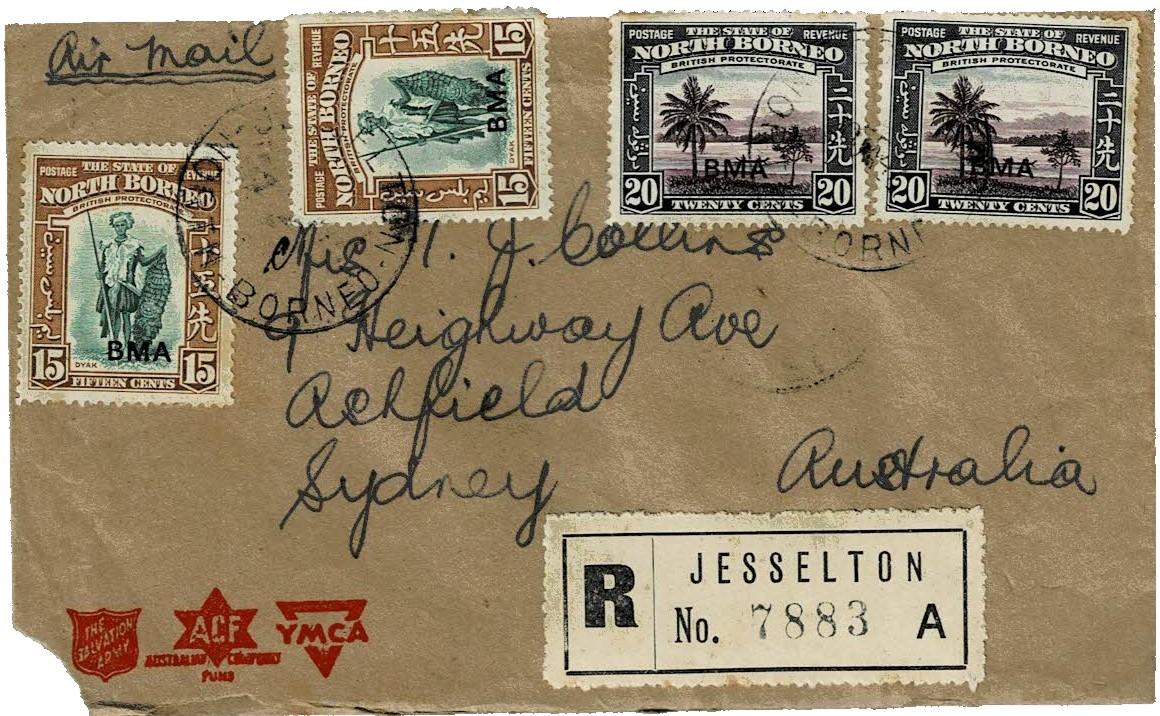 Air Mail
THE STATE OF
POSTAGE REVENUE
NORTH BORNEO
BRITISH PROTECTORATE
十五先
15 DYAK 15
FIFTEEN CENTS
BMA
THE STATE OF
POSTAGE REVENUE
NORTH BORNEO
BRITISH PROTECTORATE
十五先
15 DYAK 15
FIFTEEN CENTS
BMA
THE STATE OF
POSTAGE REVENUE
NORTH BORNEO
BRITISH PROTECTORATE
二十先
BMA
20 TWENTY CENTS 20
THE STATE OF
POSTAGE REVENUE
NORTH BORNEO
BRITISH PROTECTORATE
二十先
BMA
20 TWENTY CENTS 20
BORNEO
J. Collins
9 Heighway Ave
Ashfield
Sydney Australia
R JESSELTON
No. 7883 A
THE SALVATION ARMY
ACF
AUSTRALIAN COMFORTS FUND
YMCA